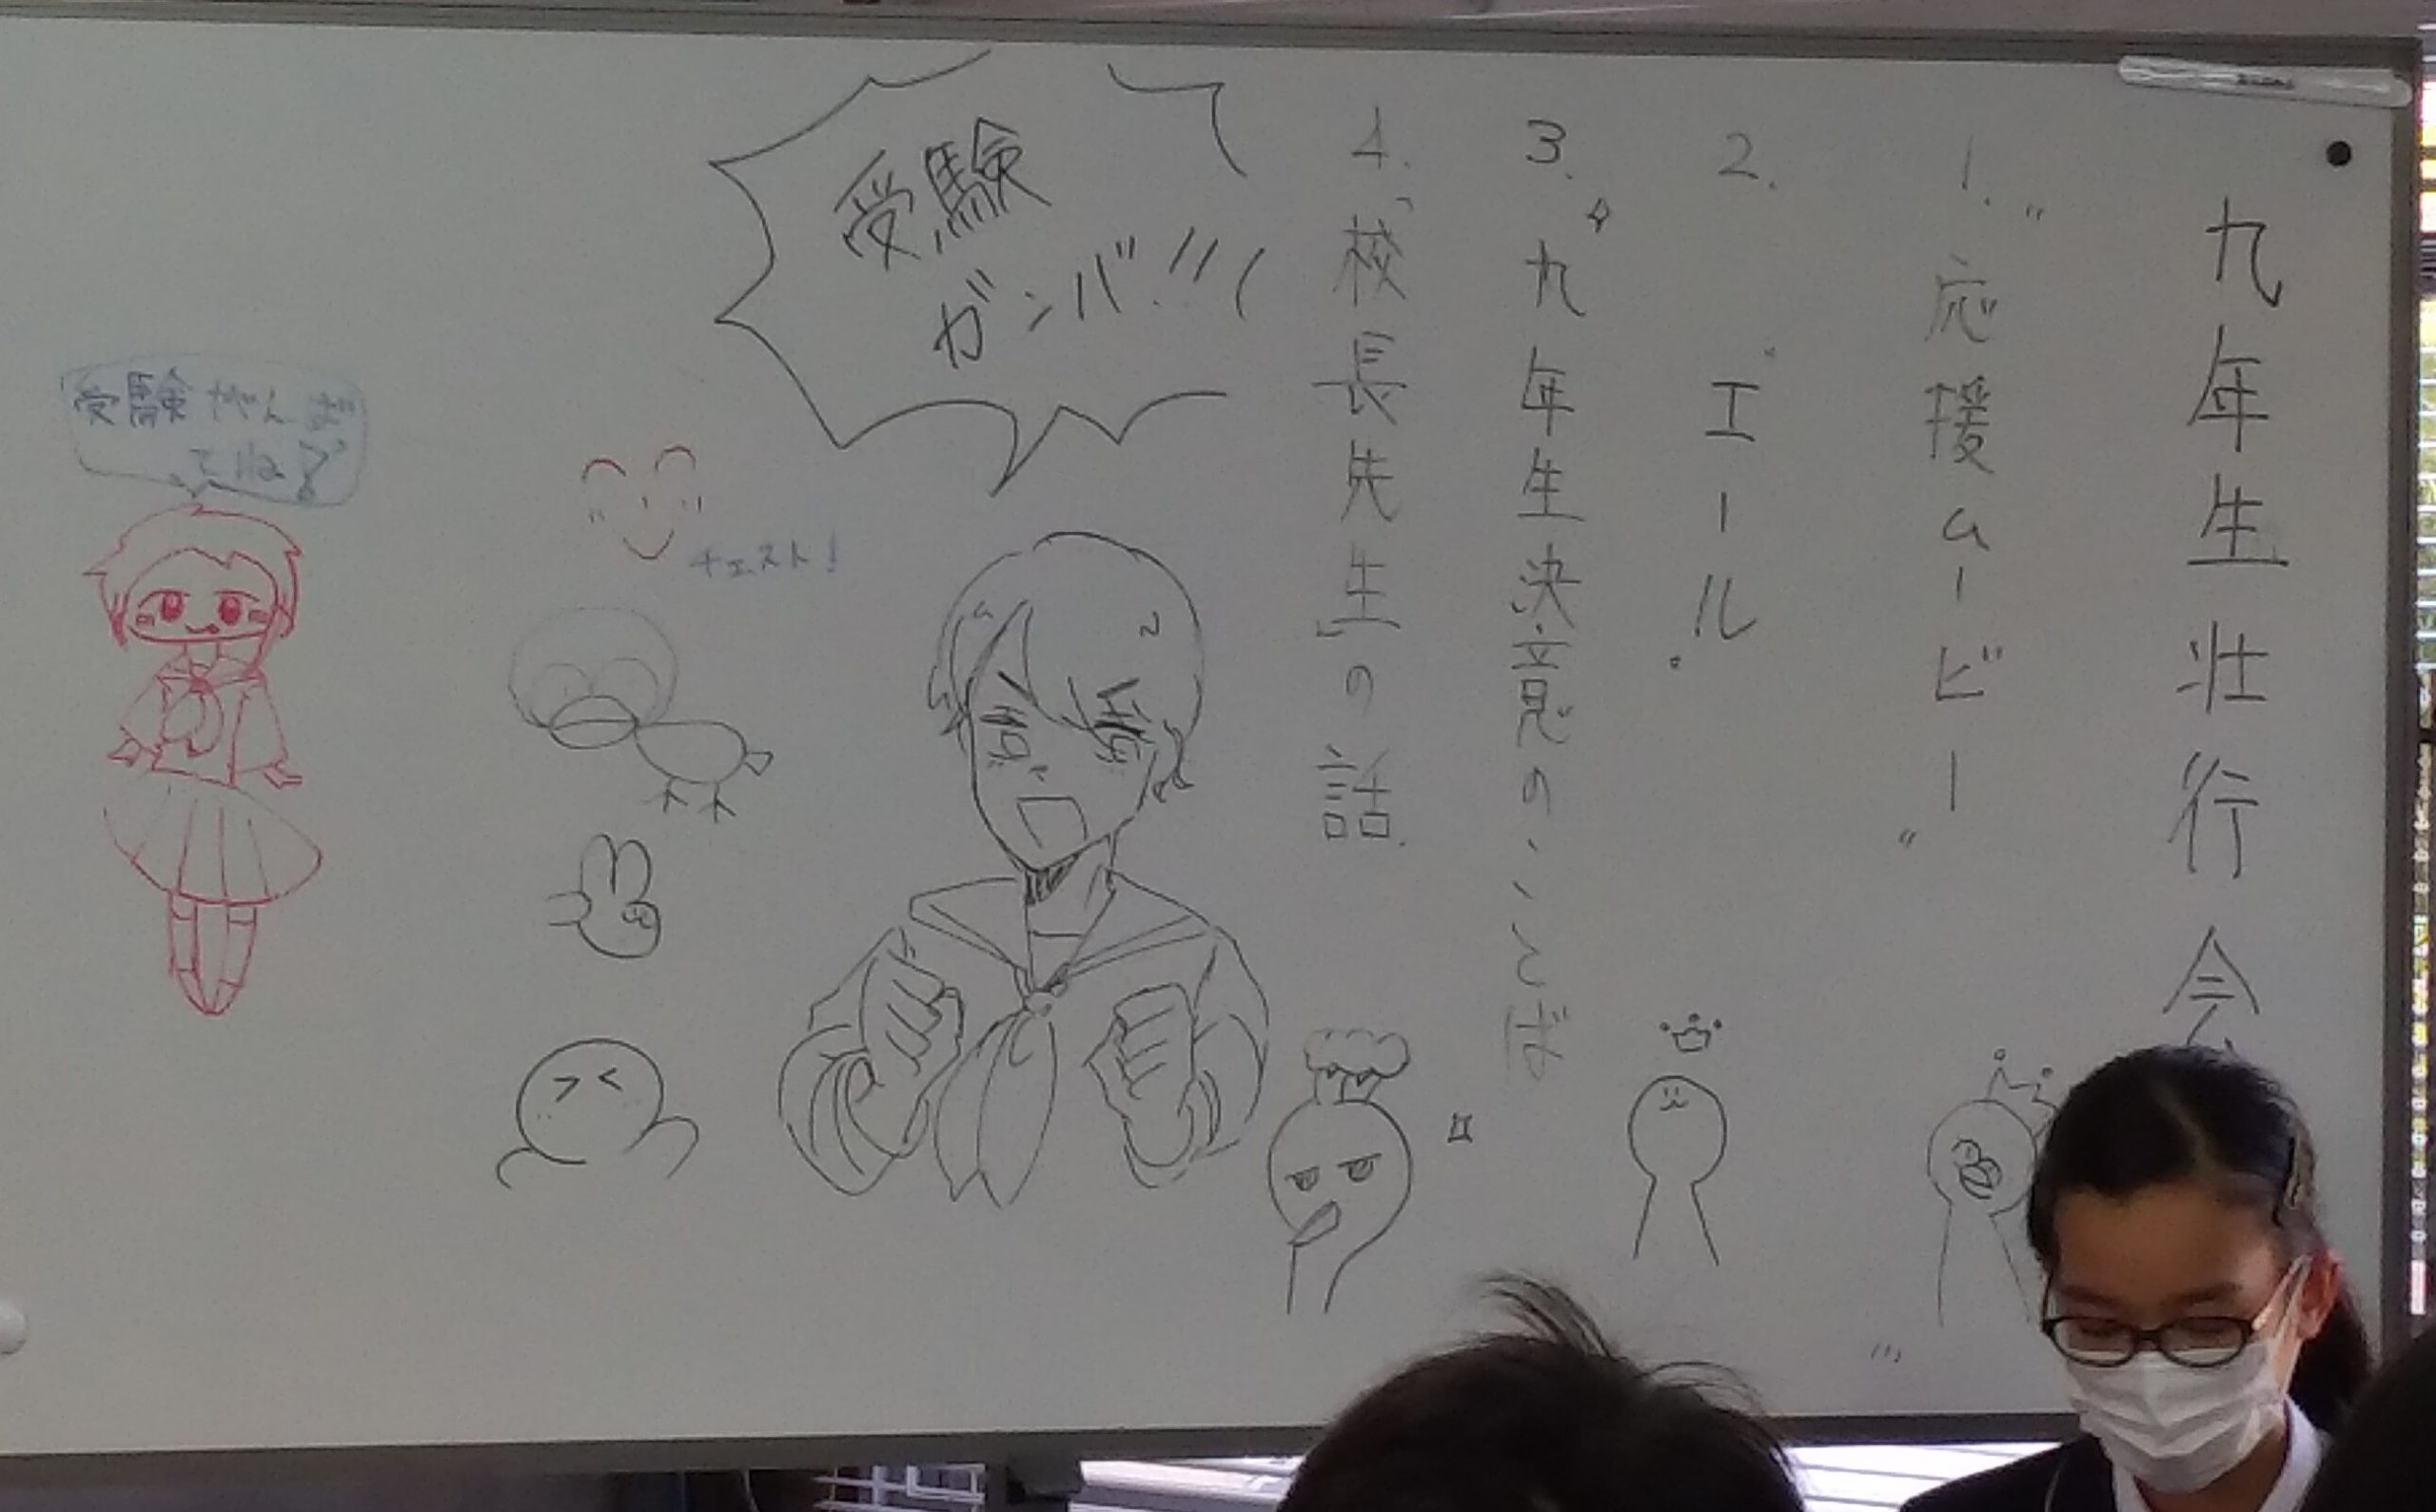 九年生壮行会
1. "応援ムービー"
2. "エール"
3. 九年生決意のことば
4.「校長先生」の話
受験
ガンバ!!!
チェスト!
受験がんば
てね!